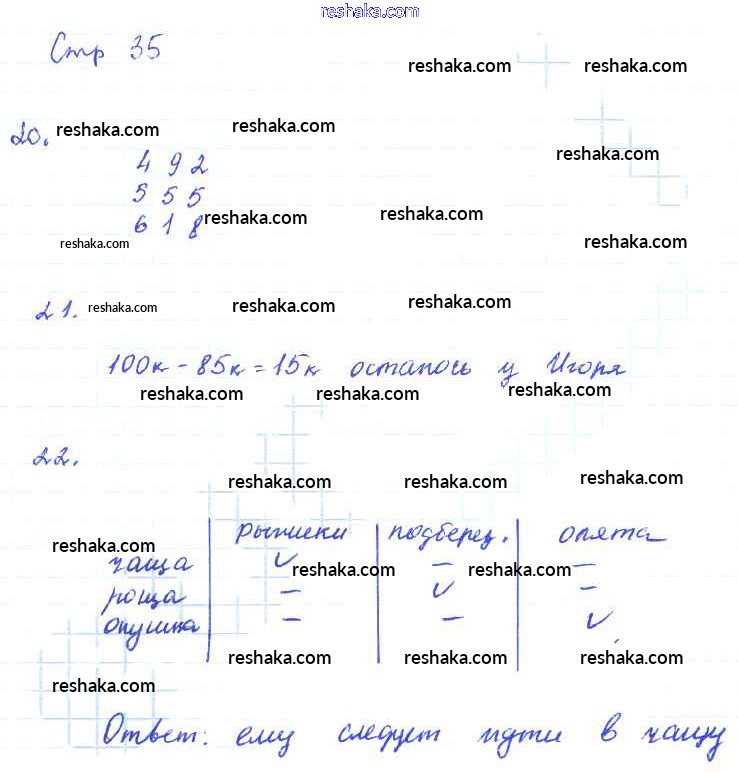 reshaka.com
Стр 35
reshaka.com reshaka.com
20. reshaka.com reshaka.com
reshaka.com
4 9 2
5 5 5
6 1 8 reshaka.com reshaka.com
reshaka.com reshaka.com
21. reshaka.com reshaka.com reshaka.com
100к - 85к = 15к осталось у Игоря
reshaka.com reshaka.com reshaka.com
22.
reshaka.com reshaka.com reshaka.com
рыжики подберез. опята
reshaka.com
чаща ✓ — —
reshaka.com reshaka.com
роща — ✓ —
опушка — — ✓
reshaka.com reshaka.com reshaka.com
reshaka.com
Ответ: ему следует идти в чащу